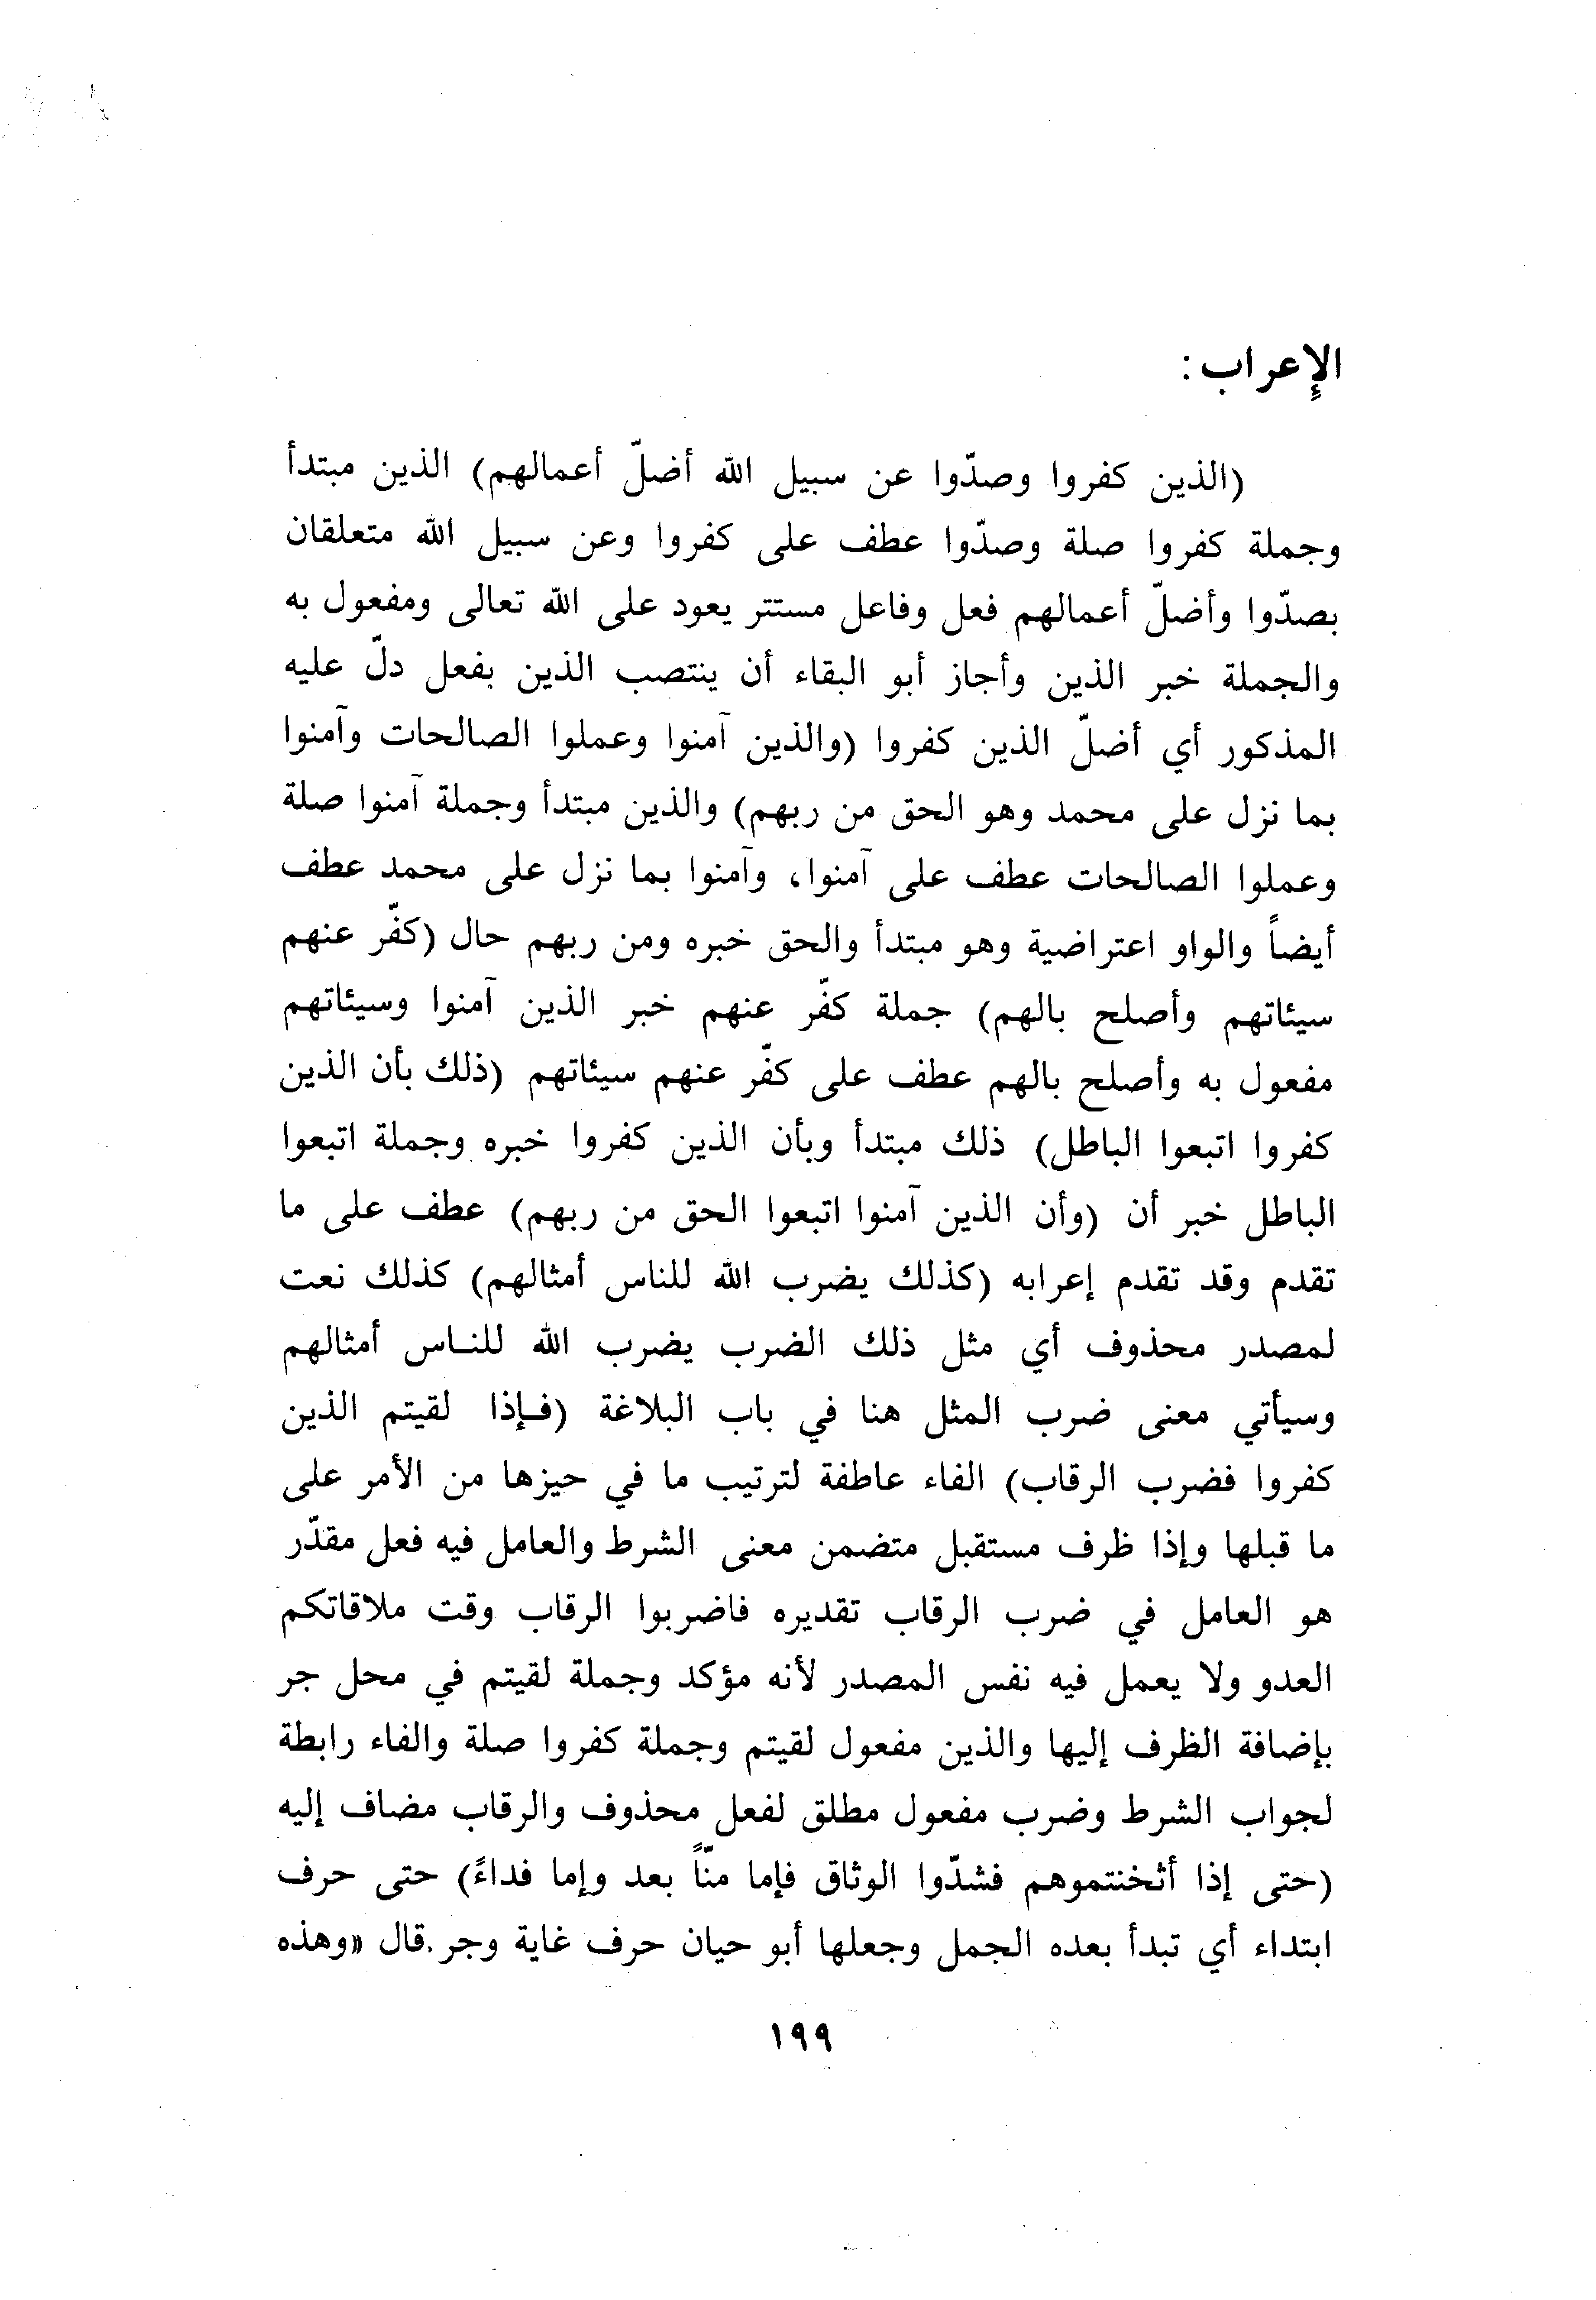 الإعراب :
(الذين كفروا وصدّوا عن سبيل الله أضلّ أعمالهم) الذين مبتدأ
وجملة كفروا صلة وصدّوا عطف على كفروا وعن سبيل الله متعلقان
بصدّوا وأضلّ أعمالهم فعل وفاعل مستتر يعود على الله تعالى ومفعول به
والجملة خبر الذين وأجاز أبو البقاء أن ينتصب الذين بفعل دلّ عليه
المذكور أي أضلّ الذين كفروا (والذين آمنوا وعملوا الصالحات وآمنوا
بما نزل على محمد وهو الحق من ربهم) والذين مبتدأ وجملة آمنوا صلة
وعملوا الصالحات عطف على آمنوا، وآمنوا بما نزل على محمد عطف
أيضاً والواو اعتراضية وهو مبتدأ والحق خبره ومن ربهم حال (كفّر عنهم
سيئاتهم وأصلح بالهم) جملة كفّر عنهم خبر الذين آمنوا وسيئاتهم
مفعول به وأصلح بالهم عطف على كفّر عنهم سيئاتهم (ذلك بأن الذين
كفروا اتبعوا الباطل) ذلك مبتدأ وبأن الذين كفروا خبره وجملة اتبعوا
الباطل خبر أن (وأن الذين آمنوا اتبعوا الحق من ربهم) عطف على ما
تقدم وقد تقدم إعرابه (كذلك يضرب الله للناس أمثالهم) كذلك نعت
لمصدر محذوف أي مثل ذلك الضرب يضرب الله للنـاس أمثالهم
وسيأتي معنى ضرب المثل هنا في باب البلاغة (فـإذا لقيتم الذين
كفروا فضرب الرقاب) الفاء عاطفة لترتيب ما في حيزها من الأمر على
ما قبلها وإذا ظرف مستقبل متضمن معنى الشرط والعامل فيه فعل مقدّر
هو العامل في ضرب الرقاب تقديره فاضربوا الرقاب وقت ملاقاتكم
العدو ولا يعمل فيه نفس المصدر لأنه مؤكد وجملة لقيتم في محل جر
بإضافة الظرف إليها والذين مفعول لقيتم وجملة كفروا صلة والفاء رابطة
لجواب الشرط وضرب مفعول مطلق لفعل محذوف والرقاب مضاف إليه
(حتى إذا أثخنتموهم فشدّوا الوثاق فإما منّاً بعد وإما فداءً) حتى حرف
ابتداء أي تبدأ بعده الجمل وجعلها أبو حيان حرف غاية وجر.قال «وهذه
١٩٩